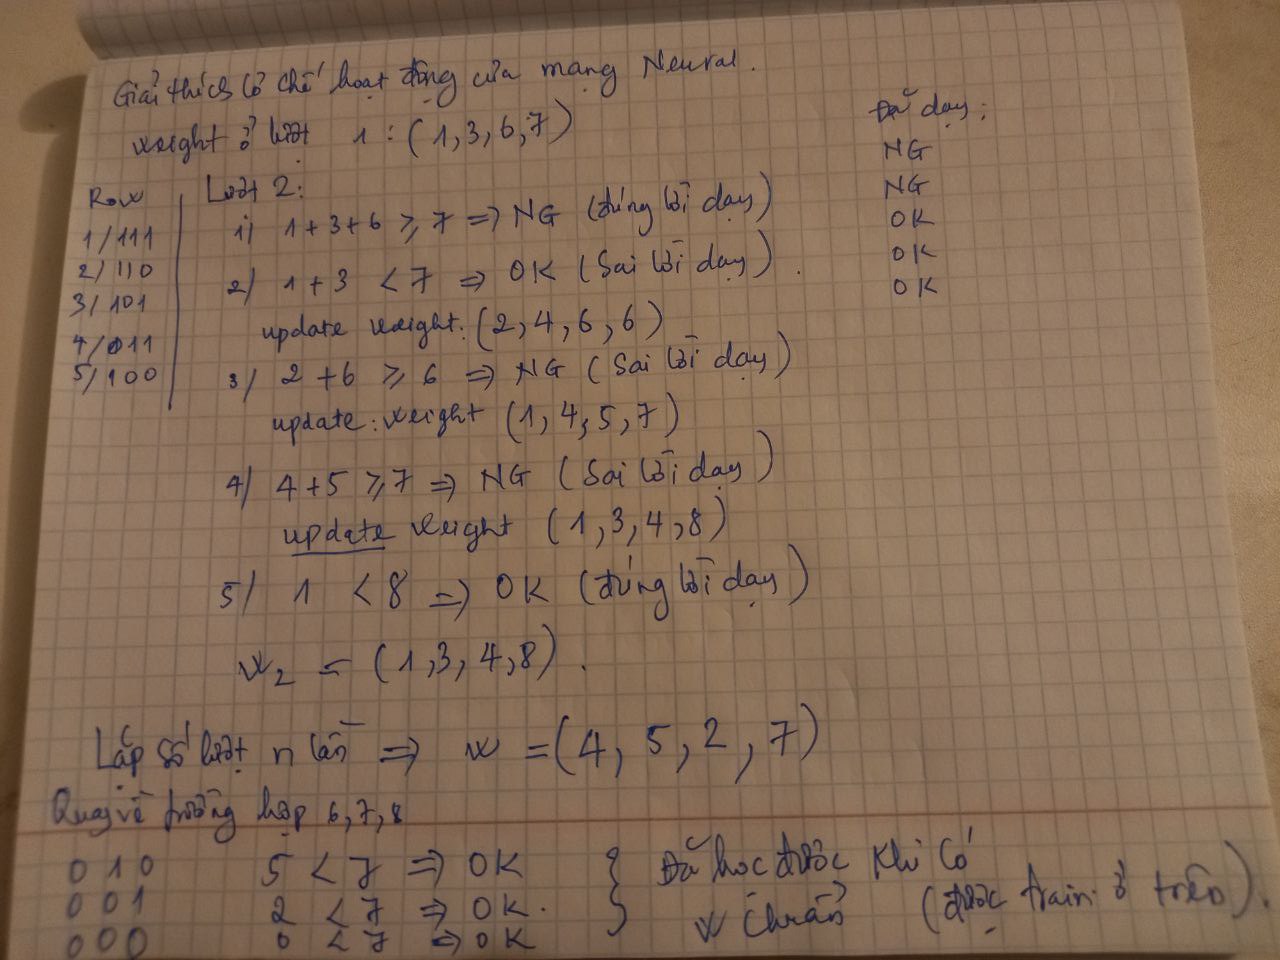 Giải thích cơ chế hoạt động của mạng Neural.
weight ở lượt 1 : (1,3,6,7)
Đã dạy:
NG
NG
OK
OK
OK
Row
1/111
2/110
3/101
4/011
5/100
Lượt 2:
1) 1+3+6 ≥ 7 => NG (đúng lời dạy)
2) 1+3 < 7 => OK (Sai lời dạy).
update weight: (2,4,6,6)
3) 2+6 ≥ 6 => NG (Sai lời dạy)
update: weight (1,4,5,7)
4) 4+5 ≥ 7 => NG (Sai lời dạy)
update weight (1,3,4,8)
5) 1 < 8 => OK (đúng lời dạy)
w2 = (1,3,4,8).
Lắp số lượt n lần => w = (4,5,2,7)
Quay về trường hợp 6,7,8
010 5 < 7 => OK
001 2 < 7 => OK.
000 0 < 7 => OK
} Đã học được khi có
w chuẩn (được train ở trên).